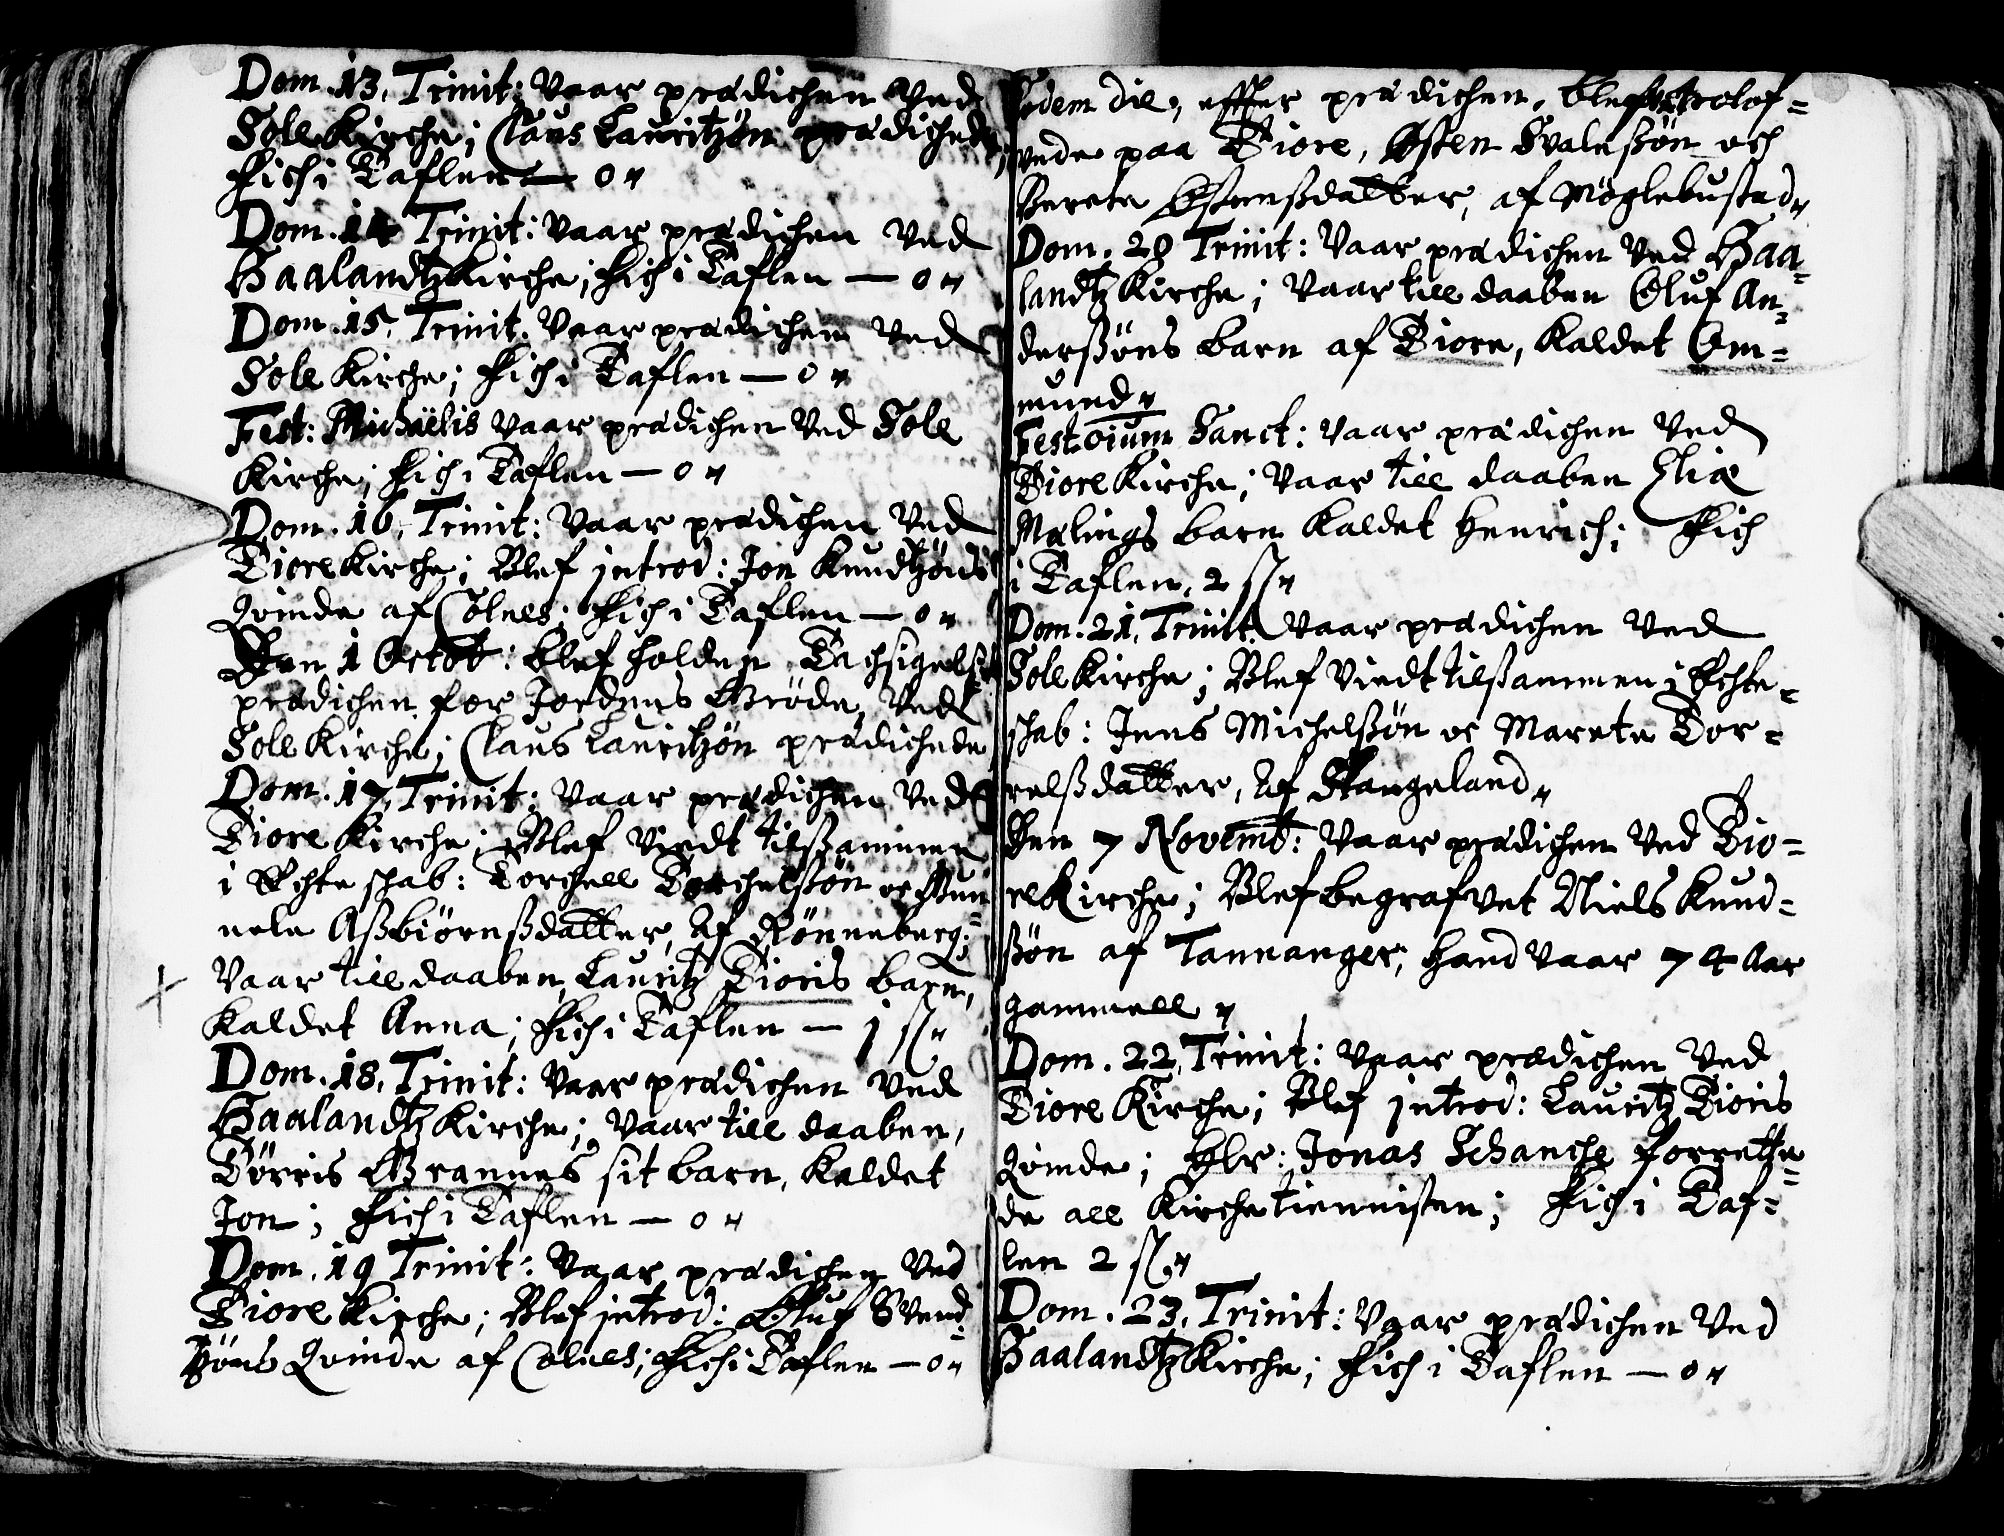 Dom. 13, Trinit: Vaar prædichen Ved
Sole Kirche; Claus Lauritzøn prædichede,
Fich i Taflen — 0 "
Dom. 14 Trinit: Vaar prædichen Ved
Haalandtz Kirche; Fich i Taflen — 0 "
Dom. 15, Trinit. Vaar prædichen Ved
Sole Kirche; Fich i Taflen — 0 "
Fest: Michaëlis Vaar prædichen Ved Sole
Kirche; Fich i Taflen — 0 "
Dom. 16, Trinit: Vaar prædichen Ved
Tiore Kirche; Blef introd: Jon Knudtzøns
Qvinde af Colnes; Fich i Taflen — 0 "
Den 1 Octob: blef holden Tachsigelse
prædichen for Jordens Grøde, Ved
Sole Kirche; Claus Lauritzøn prædichede
Dom. 17, Trinit: Vaar prædichen Ved
Tiore Kirche; Blef Viedt tilsammen
i Echteschab: Torchell Torchelsøn oc Gun=
nele Asbiørnsdatter, Af Rønneberg;
Vaar till daaben, Lauritz Tioris barn,
Kaldet Anna; Fich i Taflen — 1 sk "
Dom. 18, Trinit: Vaar prædichen Ved
Haalandtz Kirche; Vaar till daaben,
Tørris Grannes sit barn, Kaldet
Jon; Fich i Taflen — 0 "
Dom. 19 Trinit: Vaar prædichen Ved
Tiore Kirche; Blef introd: Oluf Svend=
tzøns Qvinde af Colnes; Fich i Taflen — 0 "
Eodem die, effter prædichen, blef trolof=
vede paa Tiore, Østen Svalesøn och
Berete Østensdatter, af Møglebustad "
Dom. 20 Trinit: Vaar prædichen Ved Haa=
landtz Kirche; Vaar till daaben Oluf An=
dersøns barn af Tiore, Kaldet Om=
mund "
Fest. oium Sanct: Vaar prædichen Ved
Tiore Kirche; Vaar till daaben Eliæ
Malings barn Kaldet Henrich; Fich
i Taflen, 2 sk "
Dom. 21, Trinit. Vaar prædichen Ved
Sole Kirche; Blef Viedt tilsammen i Echte=
schab: Jens Michelsøn oc Marete Tor=
relsdatter, Af Stangeland "
Den 7 Novemb: Vaar prædichen Ved Tio=
re Kirche; Blef begrafvet Niels Knud=
søn af Tannanger, hand Vaar 74 Aar
gammell "
Dom. 22, Trinit: Vaar prædichen Ved
Tiore Kirche; Blef introd: Lauritz Tioris
Qvinde; Hlr: Jonas Schanche forrette=
de all Kirchetiennisten; Fich i Taf=
len 2 sk "
Dom. 23, Trinit: Vaar prædichen Ved
Haalandtz Kirche; Fich i Taflen — 0 "